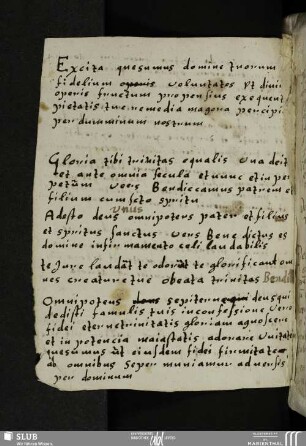 Excita quesumus domine tuorum
fidelium voluntates vt divini
operis fructum propensius exequent
pietatis tue remedia magora percipi
per duruminum nostrum
Gloria tibi trinitas equalis una deit
tet ante omnia secula et nunc et in per
petum vers Bendicamus patrem et
filium cum scto spritu
unus
Adesto deus omnipotens pater et filius
et spritus sanctus vers Benedictus es
domine infirmamento celi laudabilis
te Jure laudat te odorat te glorificant om
nes creature tue o beata trinitas
Omnipotens sepiterne deus qui
dedisti famulis tuis in confessione vere
fidei eterne trinitatis gloriam agnoscere
et in potencia maiestatis adorare vnitatem
quesumus ut eiusdem fidei firmitate
ab omnibus seper muniamur aduersis
per dominum
SLUB
Wir führen Wissen.
MARIENTHAL